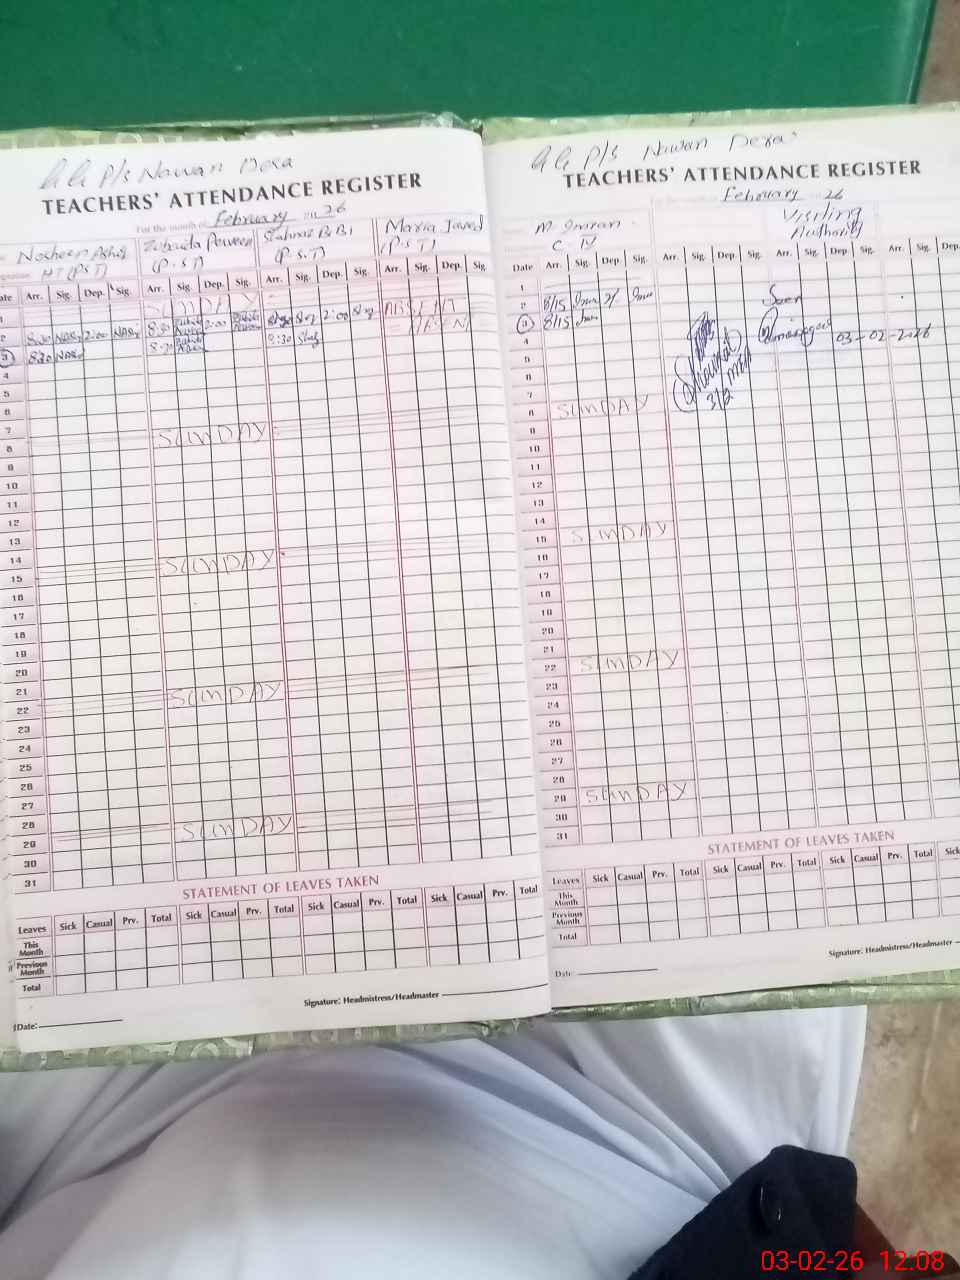 G G P/S Nawan Dera
TEACHERS' ATTENDANCE REGISTER
For the month of February 26
Nosheen Zubaida Perveen Shahnaz BiBi Maria Javed
HT (PST) (P.S.T) (P.S.T) (P.S.T)
Arr. Sig. Dep. Sig. Arr. Sig. Dep. Sig. Arr. Sig. Dep. Sig. Arr. Sig. Dep. Sig.
SUNDAY
8:30 2:00 8:30 2:00 8:30 2:00 ABSENT
3 8:30 8:30
4
5
6
7
8 SUNDAY
9
10
11
12
13
14
15 SUNDAY
16
17
18
19
20
21
22 SUNDAY
23
24
25
26
27
28
29 SUNDAY
30
31
STATEMENT OF LEAVES TAKEN
Leaves Sick Casual Prv. Total Sick Casual Prv. Total Sick Casual Prv. Total Sick Casual Prv. Total
This Month
Previous Month
Total
Signature: Headmistress/Headmaster
Date:
G G P/S Nawan Dera
TEACHERS' ATTENDANCE REGISTER
February 26
M. Imran Visiting
C-IV Authority
Date Arr. Sig. Dep. Sig. Arr. Sig. Dep. Sig. Arr. Sig. Dep. Sig. Arr. Sig. Dep.
1
2 8/15 Seen
3 8/15
4 03-02-2026
5
6
7 3/2
8 SUNDAY
9
10
11
12
13
14
15 SUNDAY
16
17
18
19
20
21
22 SUNDAY
23
24
25
26
27
28
29 SUNDAY
30
31
STATEMENT OF LEAVES TAKEN
Leaves Sick Casual Prv. Total Sick Casual Prv. Total Sick Casual Prv. Total Sick
This Month
Previous Month
Total
Signature: Headmistress/Headmaster
Date
03-02-26 12:08